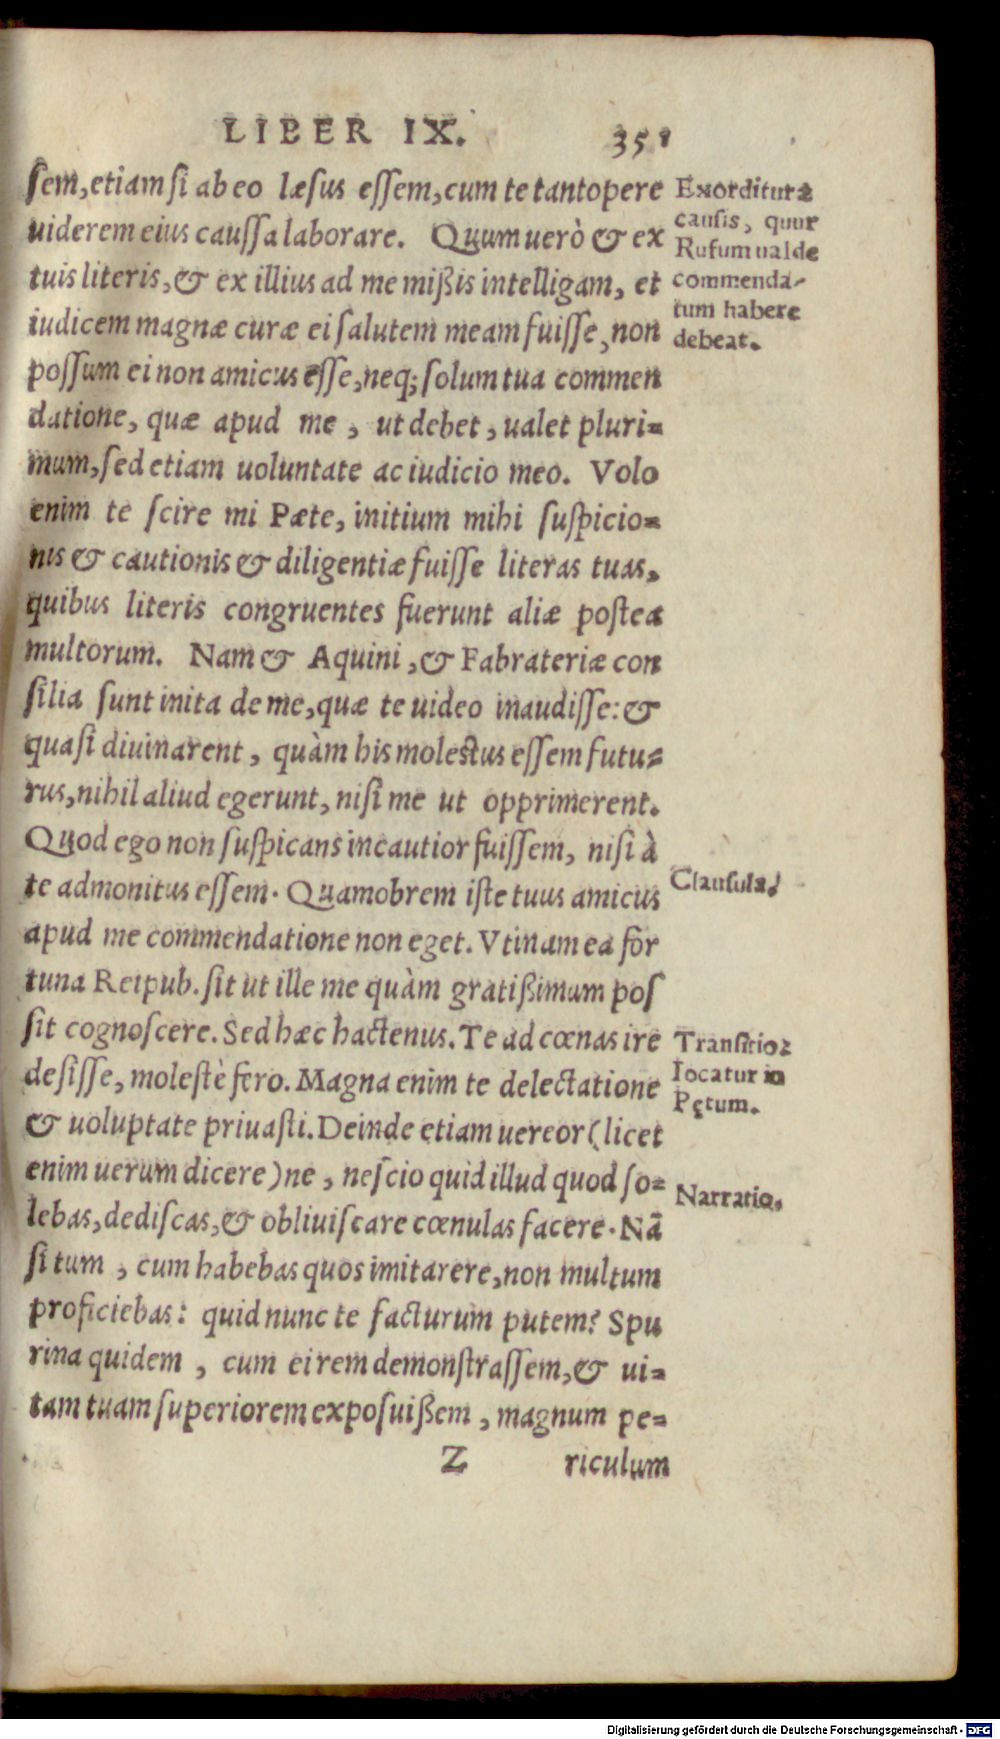 LIBER IX. 351
sem, etiam si ab eo læsus essem, cum te tantopere
uiderem eius caussa laborare. Quum uerò & ex
tuis literis, & ex illius ad me mißis intelligam, et
iudicem magnæ curæ ei salutem meam fuisse, non
possum ei non amicus esse, neq; solum tua commen
datione, quæ apud me, ut debet, ualet pluri=
mum, sed etiam uoluntate ac iudicio meo. Volo
enim te scire mi Pæte, initium mihi suspicio=
nis & cautionis & diligentiæ fuisse literas tuas,
quibus literis congruentes fuerunt aliæ postea
multorum. Nam & Aquini, & Fabrateriæ con
silia sunt inita de me, quæ te uideo inaudisse: &
quasi diuinarent, quàm his molestus essem futu=
rus, nihil aliud egerunt, nisi me ut opprimerent.
Quod ego non suspicans incautior fuissem, nisi à
te admonitus essem. Quamobrem iste tuus amicus
apud me commendatione non eget. Vtinam ea for
tuna Reipub. sit ut ille me quàm gratißimum pos
sit cognoscere. Sed hæc hactenus. Te ad cœnas ire
desisse, molestè fero. Magna enim te delectatione
& uoluptate priuasti. Deinde etiam uereor (licet
enim uerum dicere) ne, nescio quid illud quod so=
lebas, dediscas, & obliuiscare cœnulas facere. Nã
si tum, cum habebas quos imitarere, non multum
proficiebas: quid nunc te facturum putem? Spu
rina quidem, cum ei rem demonstrassem, & ui=
tam tuam superiorem exposuißem, magnum pe=
Z riculum
Exorditur à
causis, quur
Rufum ualde
commenda-
tum habere
debeat.
Clausula.
Transitio:
Iocatur in
Pętum.
Narratio.
Digitalisierung gefördert durch die Deutsche Forschungsgemeinschaft - DFG